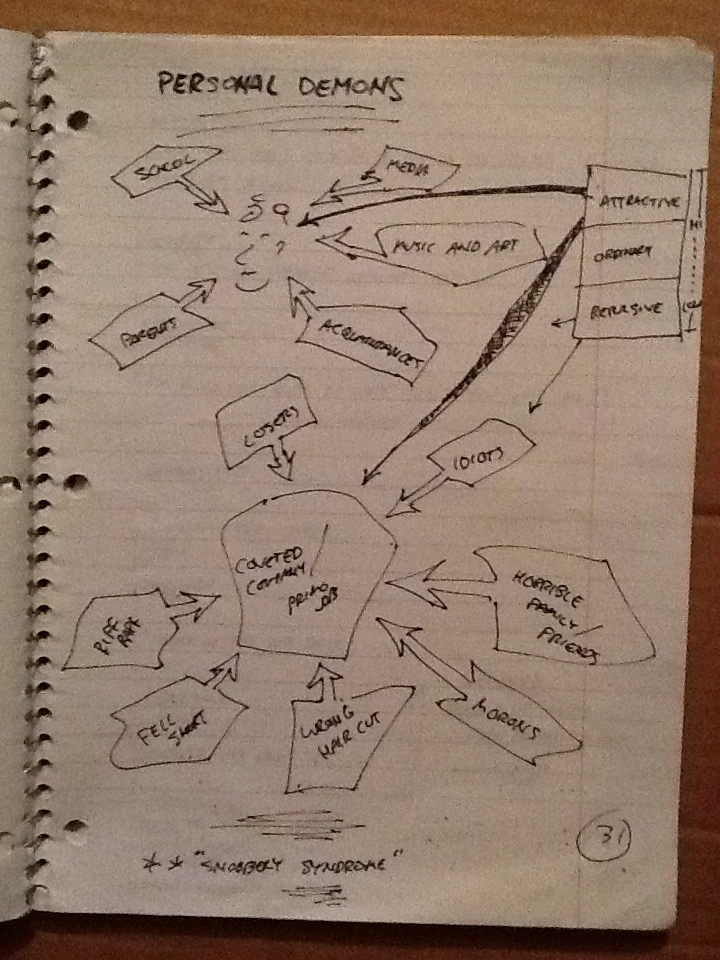 PERSONAL DEMONS
SCHOOL
MEDIA
ATTRACTIVE
HI
MUSIC AND ART
ORDINARY
PARENTS
ACQUAINTANCES
REPULSIVE
LOSERS
IDIOTS
COVETED
COMPANY /
PRIMO
JOB
HORRIBLE
FAMILY /
FRIENDS
RIFF
RAFF
FELL
SHORT
WRONG
HAIR CUT
MORONS
31
* * "SNOBBERY SYNDROME"